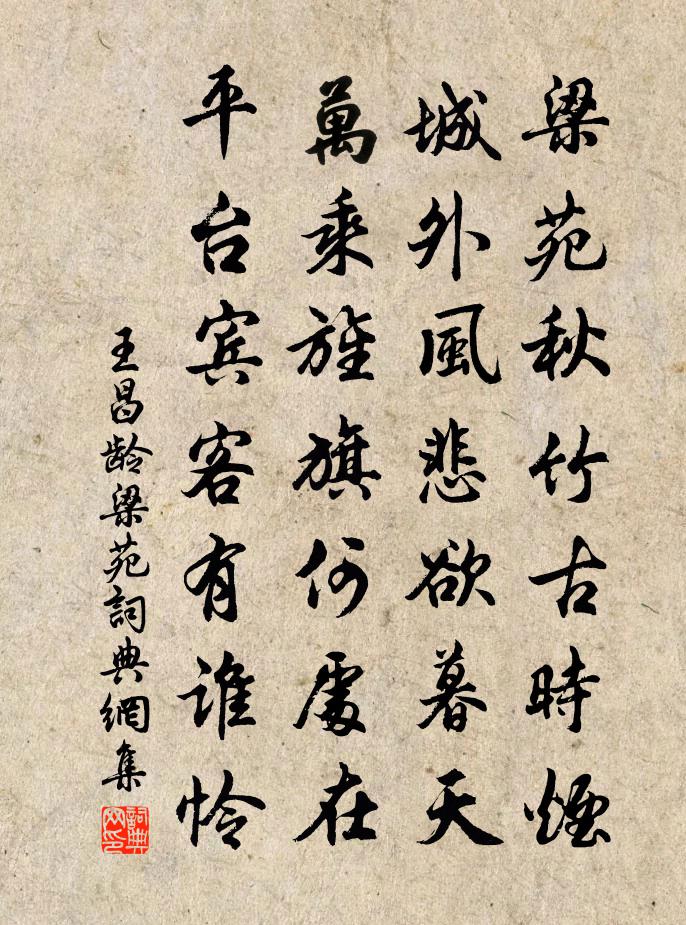 梁苑秋竹古時煙
城外風悲欲暮天
萬乘旌旗何處在
平台賓客有誰怜
王昌龄梁苑詞典網集
詞典网印